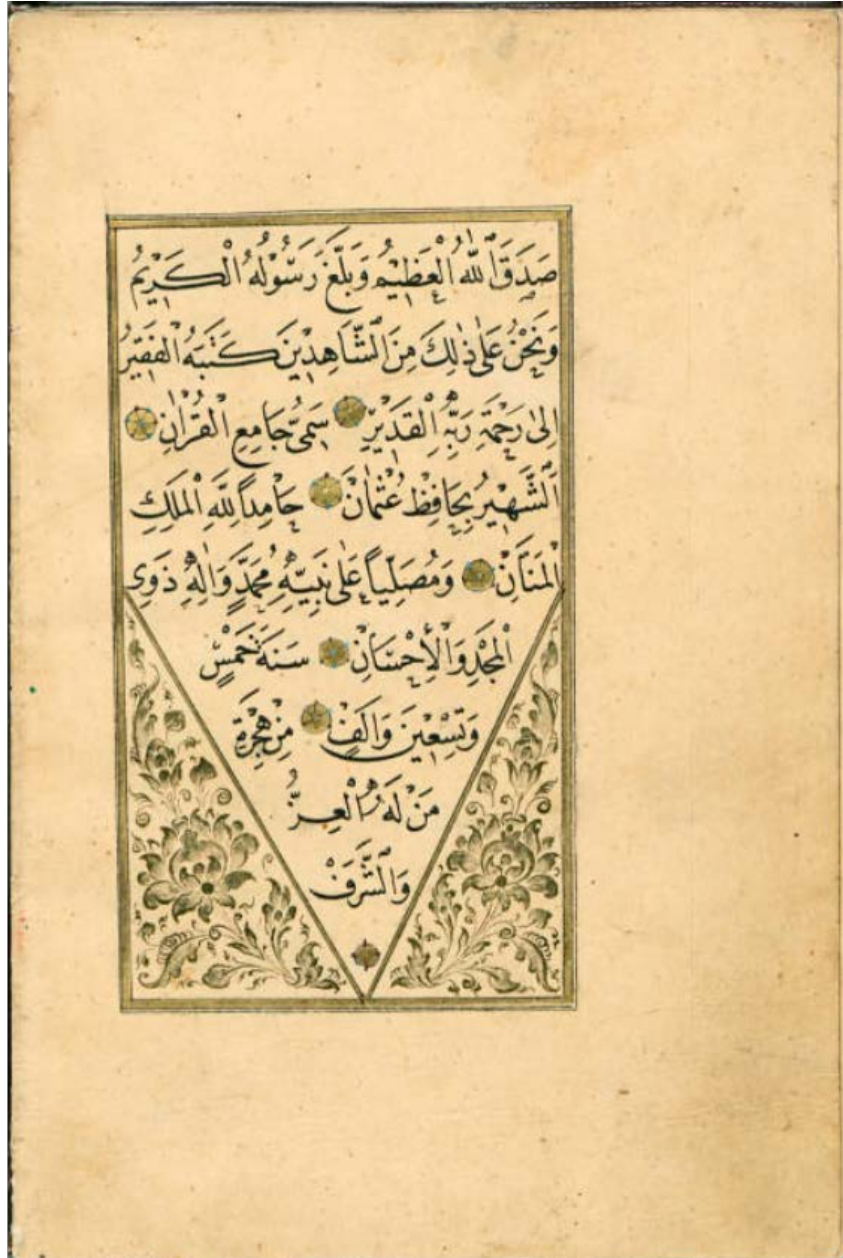 صَدَقَ ٱللّٰهُ الْعَظِيْمُ وَبَلَّغَ رَسُوْلُهُ الْكَرِيْمُ
وَنَحْنُ عَلٰى ذٰلِكَ مِنَ ٱلشَّاهِدِيْنَ كَتَبَهُ الْفَقِيْرُ
اِلٰى رَحْمَةِ رَبِّهِ الْقَدِيْرِ سَمِىُّ جَامِعِ الْقُرْاٰنِ
اَلشَّهِيْرُ بِحَافِظْ عُثْمٰانْ حَامِداً لِلّٰهِ الْمَلِكِ
الْمَنَّانِ وَمُصَلِّياً عَلٰى نَبِيِّهِ مُحَمَّدٍ وَاٰلِهِ ذَوِى
الْمَجْدِ وَالْاِحْسَانِ سَنَةَ خَمْسٍ
وَتِسْعِيْنَ وَاَلْفٍ مِنْ هِجْرَةِ
مَنْ لَهُ الْعِزُّ
وَالشَّرَفْ